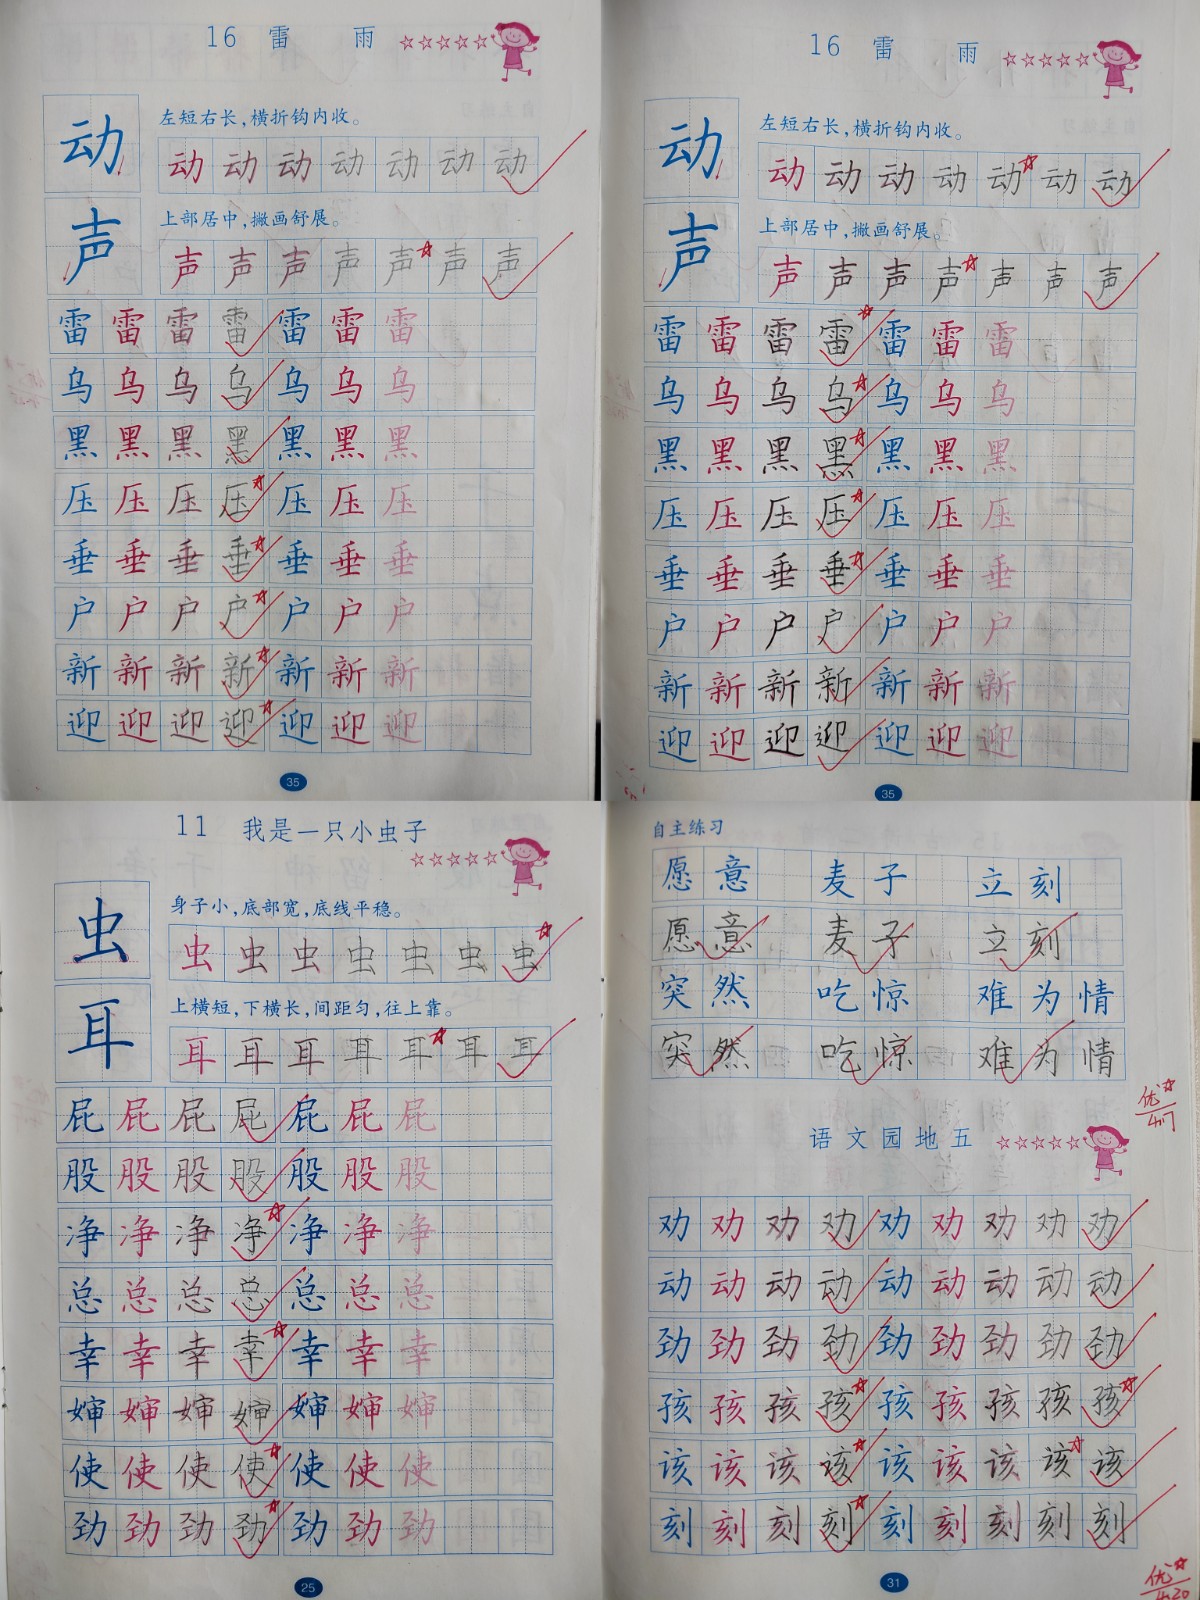 16 雷 雨
动 左短右长，横折钩内收。
动 动 动 动 动 动 动
声 上部居中，撇画舒展。
声 声 声 声 声 声 声
雷 雷 雷 雷 雷 雷 雷
乌 乌 乌 乌 乌 乌 乌
黑 黑 黑 黑 黑 黑 黑
压 压 压 压 压 压 压
垂 垂 垂 垂 垂 垂 垂
户 户 户 户 户 户 户
新 新 新 新 新 新 新
迎 迎 迎 迎 迎 迎 迎
35
16 雷 雨
动 左短右长，横折钩内收。
动 动 动 动 动 动 动
声 上部居中，撇画舒展。
声 声 声 声 声 声 声
雷 雷 雷 雷 雷 雷 雷
乌 乌 乌 乌 乌 乌 乌
黑 黑 黑 黑 黑 黑 黑
压 压 压 压 压 压 压
垂 垂 垂 垂 垂 垂 垂
户 户 户 户 户 户 户
新 新 新 新 新 新 新
迎 迎 迎 迎 迎 迎 迎
35
11 我是一只小虫子
虫 身子小，底部宽，底线平稳。
虫 虫 虫 虫 虫 虫 虫
耳 上横短，下横长，间距匀，往上靠。
耳 耳 耳 耳 耳 耳 耳
屁 屁 屁 屁 屁 屁 屁
股 股 股 股 股 股 股
净 净 净 净 净 净 净
总 总 总 总 总 总 总
幸 幸 幸 幸 幸 幸 幸
婶 婶 婶 婶 婶 婶 婶
使 使 使 使 使 使 使
劲 劲 劲 劲 劲 劲 劲
25
自主练习
愿意 麦子 立刻
愿意 麦子 立刻
突然 吃惊 难为情
突然 吃惊 难为情
优
4.17
语文园地五
劝 劝 劝 劝 劝 劝 劝 劝 劝
动 动 动 动 动 动 动 动 动
劲 劲 劲 劲 劲 劲 劲 劲 劲
孩 孩 孩 孩 孩 孩 孩 孩 孩
该 该 该 该 该 该 该 该 该
刻 刻 刻 刻 刻 刻 刻 刻 刻
31
优
4.20